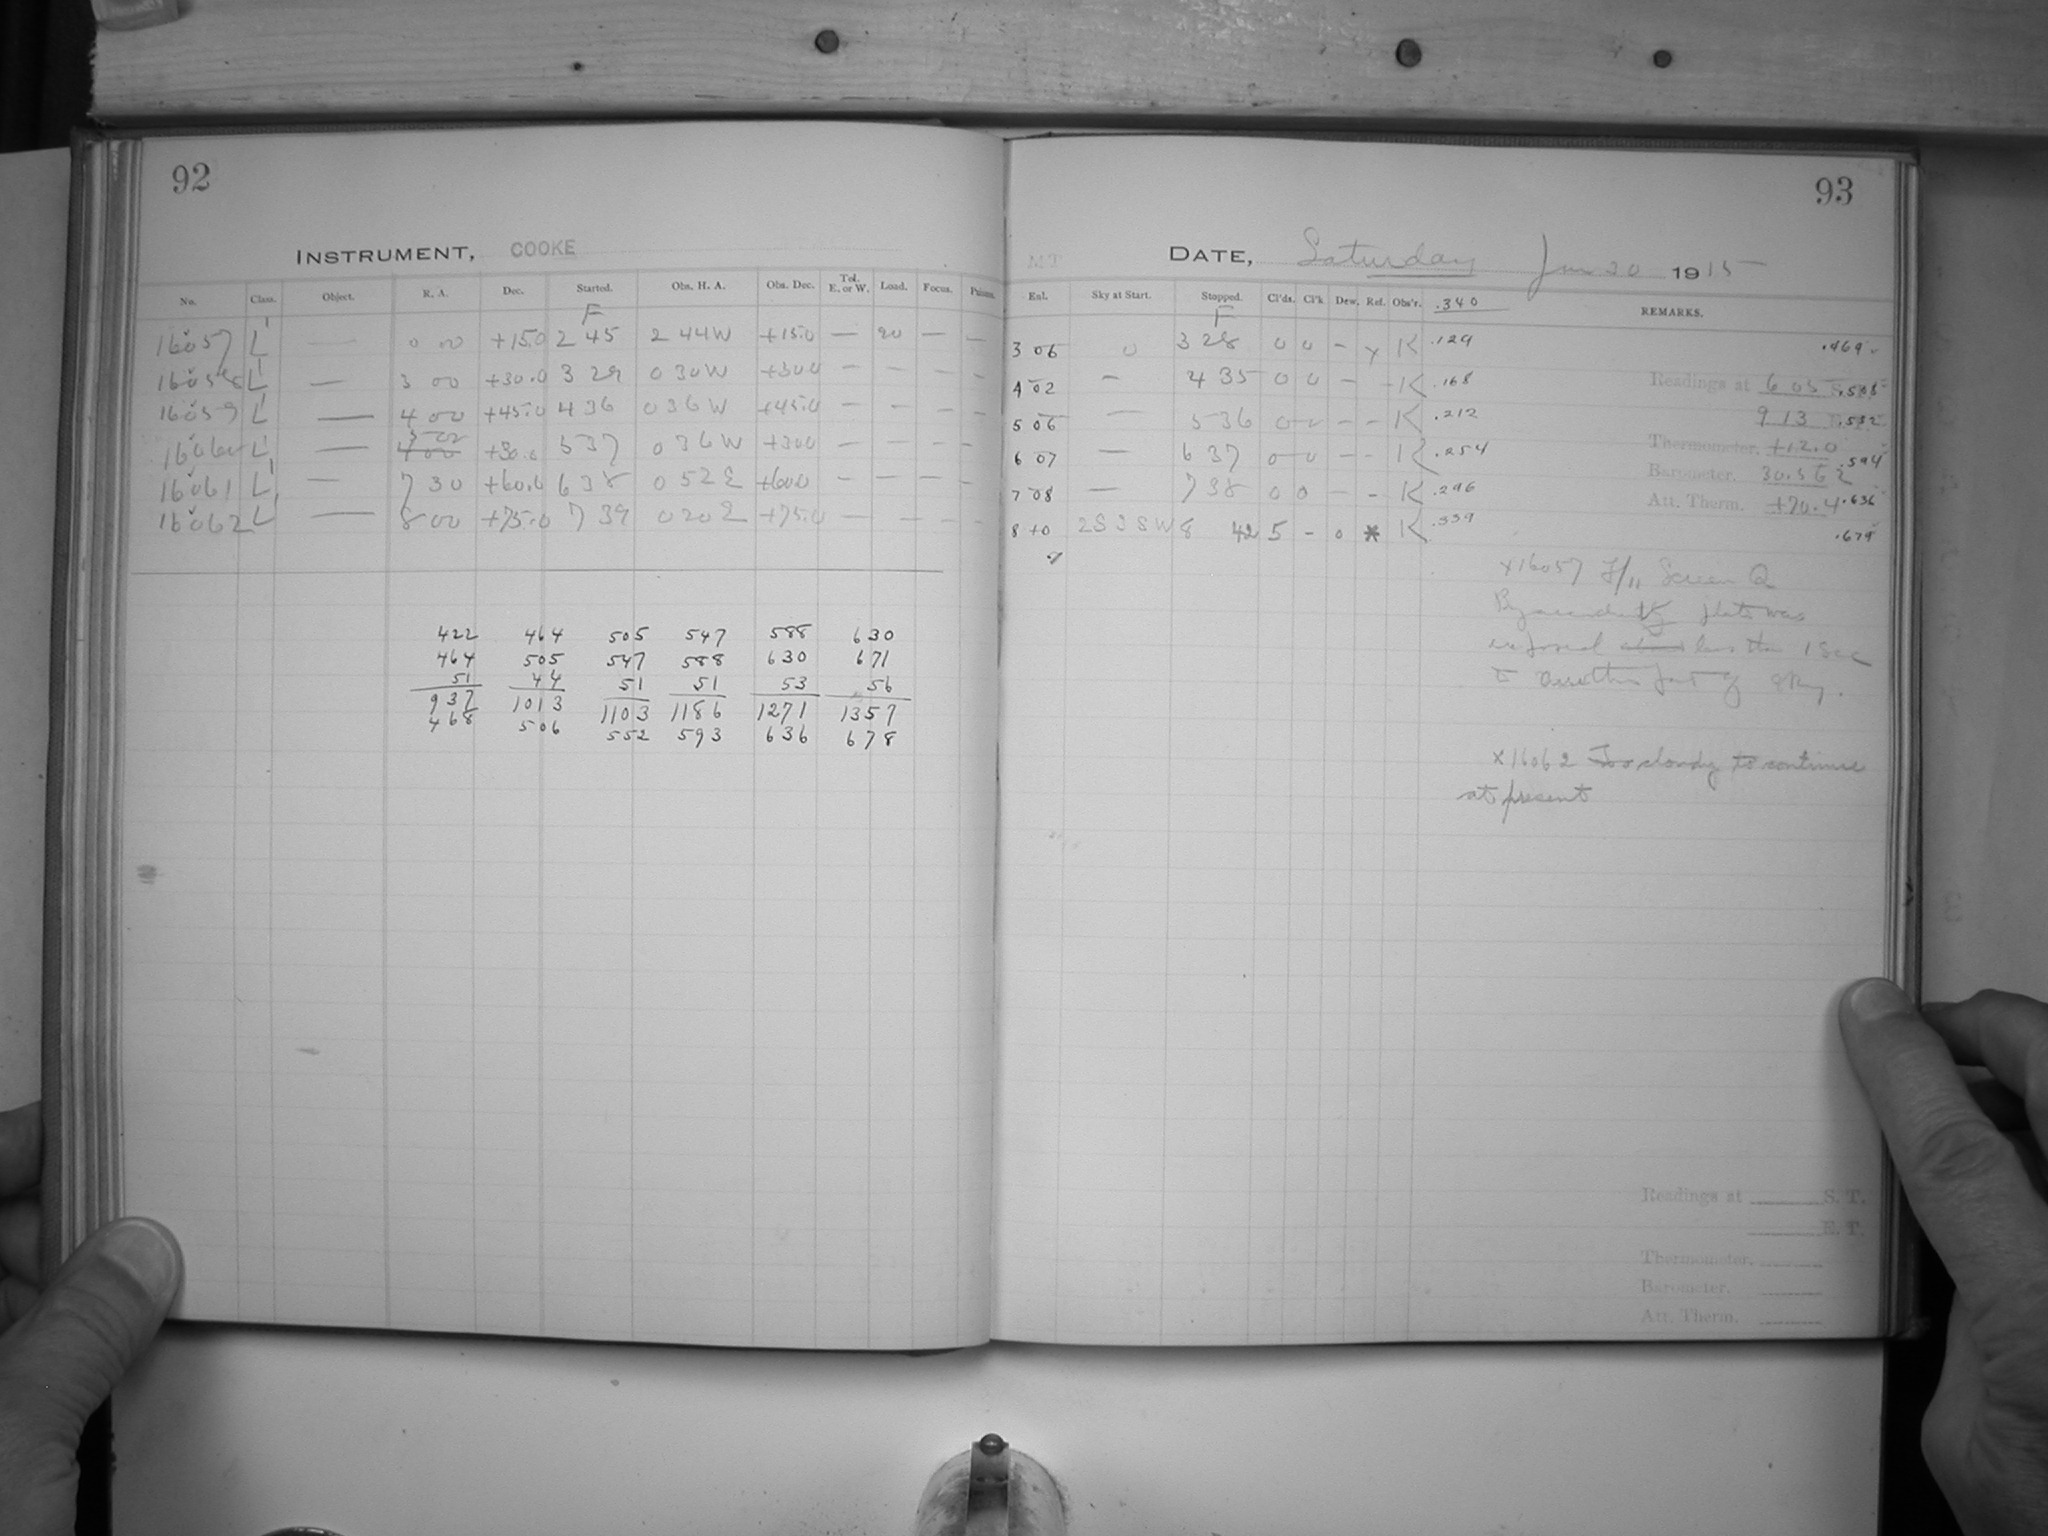 92
INSTRUMENT, COOKE
No. Class. Object. R. A. Dec. Started. Obs. H. A. Obs. Dec. Tel. E. or W. Load. Focus.
F
16057 L' — 0 00 +15.0 2 45 2 44 W +15.0 — 20 — —
16058 L' — 3 00 +30.0 3 29 0 30 W +30.0 — — — —
16059 L' — 4 00 +45.0 4 36 0 36 W +45.0 — — — —
16060 L' — 5 00 +30.0 5 37 0 36 W +30.0 — — — —
16061 L' — 7 30 +60.0 6 38 0 52 E +60.0 — — — —
16062 L' — 8 00 +75.0 7 39 0 20 E +75.0 — — — —
422 464 505 547 588 630
464 505 547 588 630 671
51 44 51 51 53 56
937 1013 1103 1186 1271 1357
468 506 552 593 636 678
93
MT DATE, Saturday Jan 30 1915
Enl. Sky at Start. Stopped. Cl'ds. Cl'k Dew. Ref. Obs'r. .340 REMARKS.
F
3 06 0 3 28 0 0 – x K .129 .469
4 02 — 4 35 0 0 – – K .168 Readings at 6 05
5 06 — 5 36 0 0 – – K .212 9 13 .552
6 07 — 6 37 0 0 – – K .254 Thermometer. +12.0 .594
7 08 — 7 38 0 0 – – K .296 Barometer. 30.562
Att. Therm. +70.4 .636
8 10 2S 3SW 8 42 5 – 0 * K .339 .679
x16057 F/11 Screen Q
By accident plate was
exposed less than 1 sec
to another part of sky.
x16062 Too cloudy to continue
at present
Readings at S. T.
E. T.
Thermometer.
Barometer.
Att. Therm.